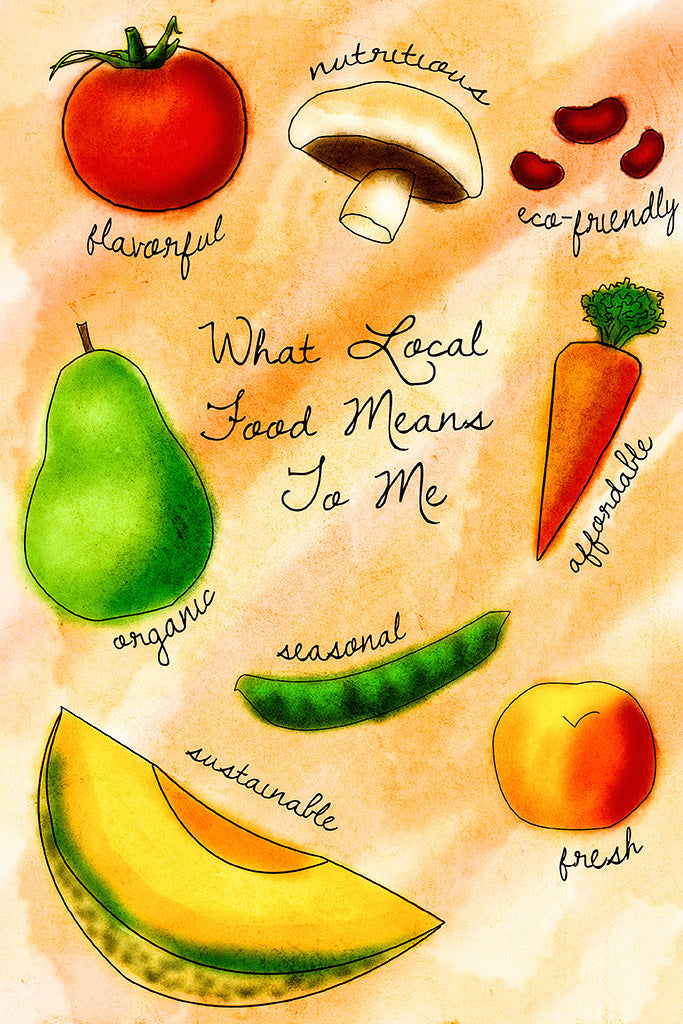 nutritious
flavorful
eco-friendly
What Local
Food Means
To Me
affordable
organic
seasonal
sustainable
fresh